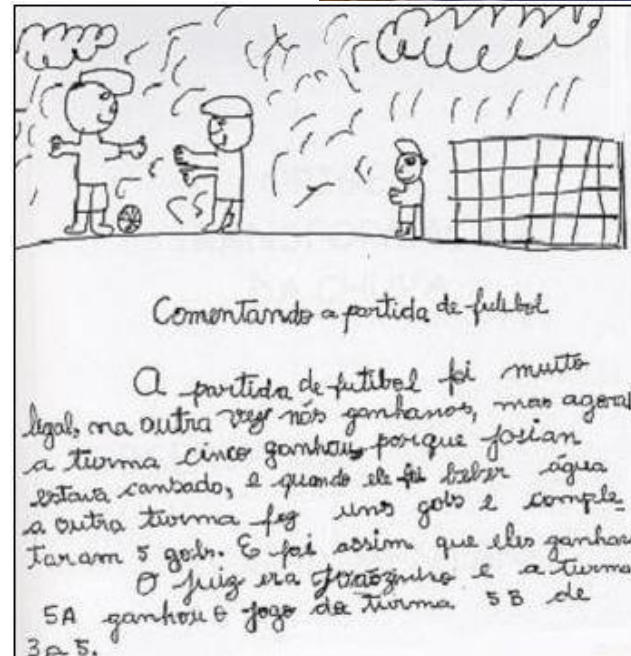 Comentando a partida de futebol
A partida de futibol foi muito
legal, na outra vez nós ganhanos, mas agora
a turma cinco ganhou, porque Josian
estava cansado, e quando ele foi beber água
a outra turma fez uns gols e comple_
taram 5 gols. E foi assim que eles ganhar
O juiz era Joãozinho e a turma
5A ganhou o jogo da turma 5B de
3 a 5.